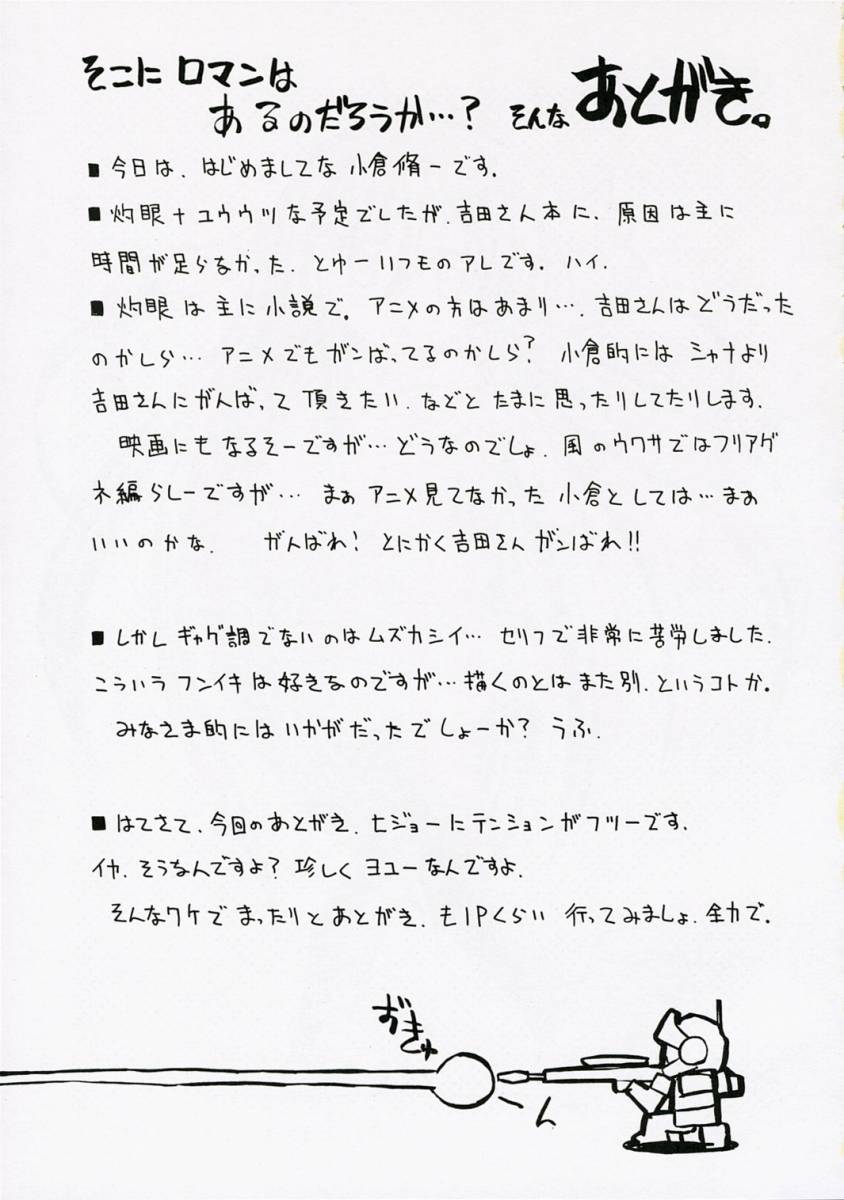 そこに ロマンは
あるのだろうか…? そんな あとがき。
■今日は、はじめましてな 小倉脩一です。
■灼眼+ユウウツな予定でしたが、吉田さん本に、原因は主に
時間が足らなかった、とゆーいつものアレです。ハイ、
■灼眼は主に小説で。アニメの方はあまり…、吉田さんはどうだった
のかしら… アニメでもガンばってるのかしら? 小倉的には シャナより
吉田さんにがんばって 頂きたい、などと たまに思ったりしてたりします。
映画にもなるそーですが…どうなのでしょ、風のウワサではフリアグ
ネ編らしーですが… まぁ アニメ見てなかった 小倉としては…まぁ
いいのかな、 がんばれ! とにかく吉田さん ガンばれ!!
■しかし ギャグ調でないのはムズカシイ… セリフで非常に苦労しました、
こういう フンイキは好きなのですが…描くのとは また別、というコトか。
みなさま的には いかがだったでしょーか? うふ、
■はてさて、今回のあとがき、ヒジョーにテンションがフツーです。
イヤ、そうなんですよ? 珍しく ヨユーなんですよ、
そんなワケで まったりとあとがき、も1Pくらい 行ってみましょ、全力で。
おきゅ
ーん